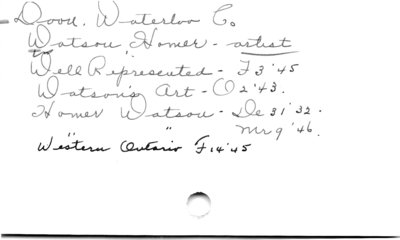 Doon. Waterloo Co.
Watson Homer - artist
Well Represented - F 3 '45
Watson's Art - O 2 '43.
Homer Watson - De 31 '32.
" " Mr 9 '46.
Western Ontario F 14 '45